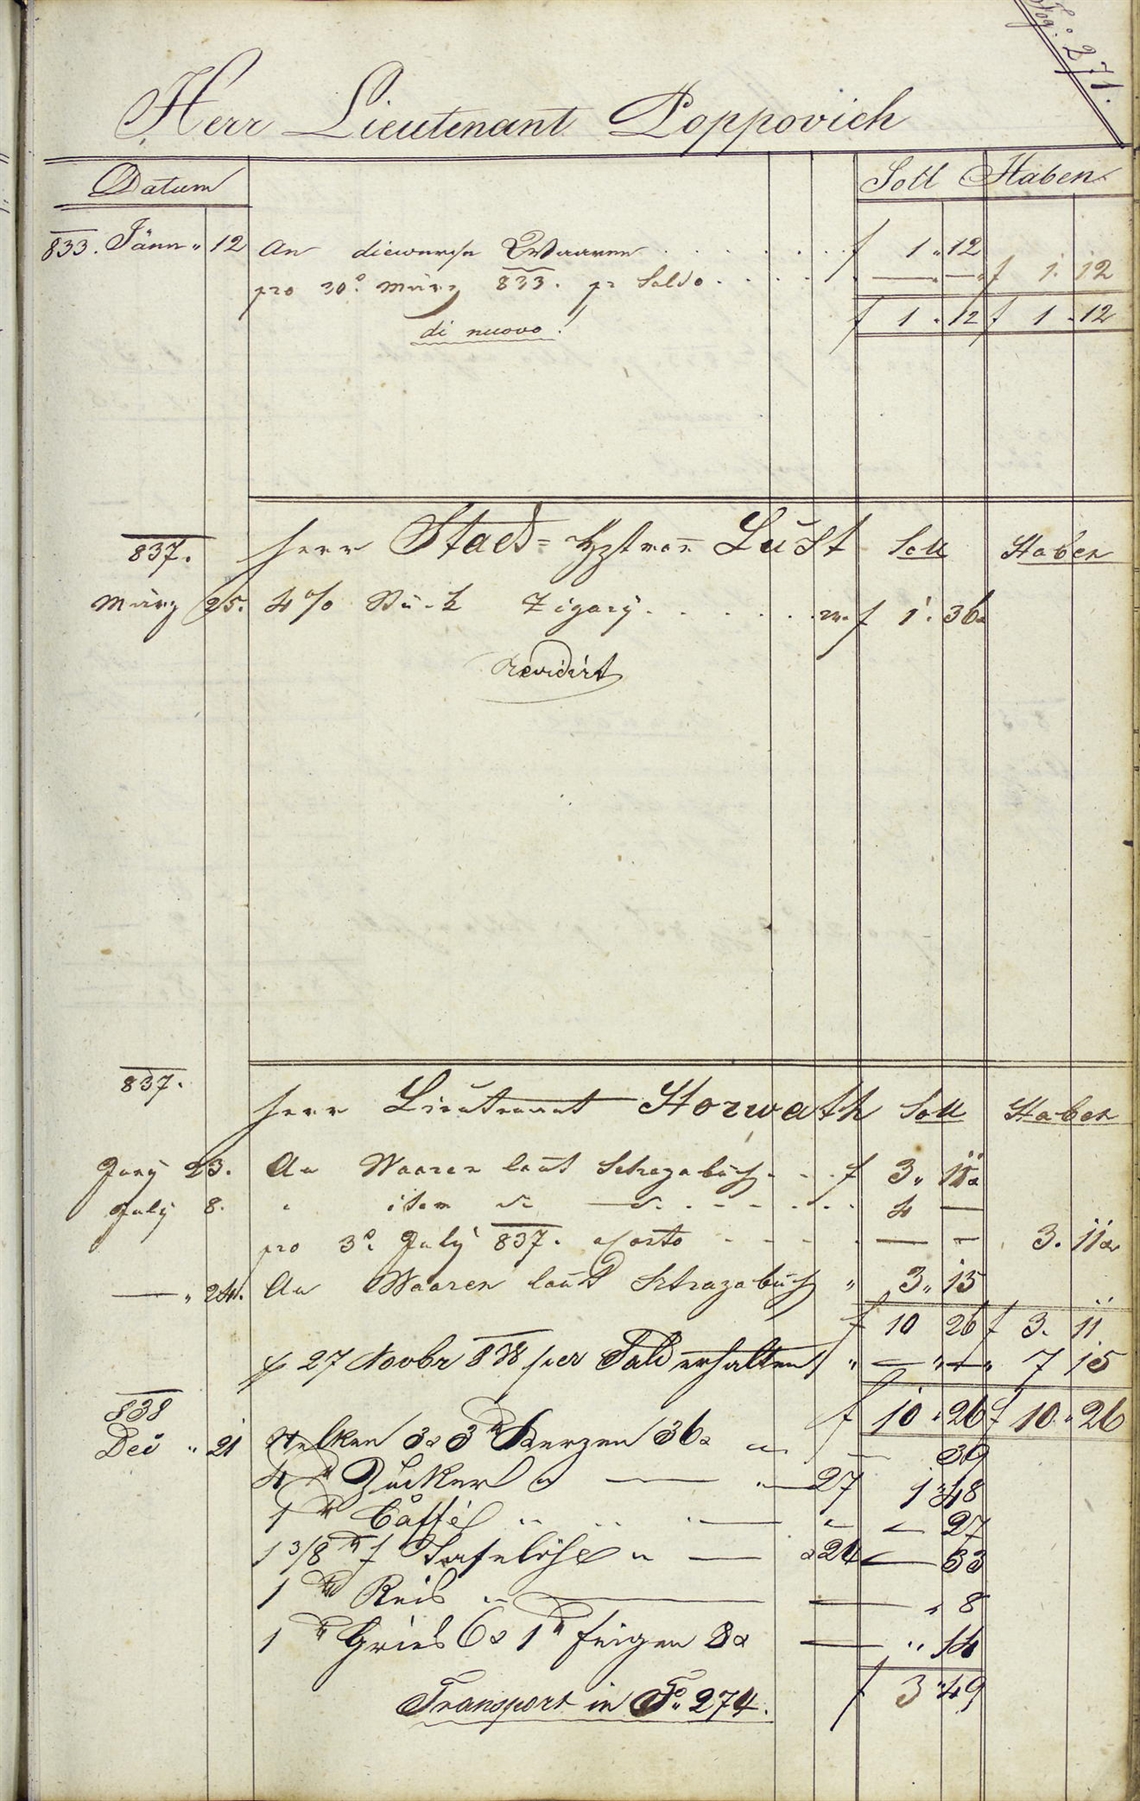 Fog: 271.
Herr Lieutenant Poppovich
Datum Soll Haben
833. Jänn " 12 An diverse Waaren . . . . . . f 1 " 12
pro 30º März 833. pr Saldo . . . . . — — f 1. 12
di nuovo! f 1 " 12 f 1 " 12
837. Herr Lust Soll Haben
März 25. 4% Zigary . . . . . f 1. 36
Revidirt
837. Herr Lieutenant Horwath Soll Haben
Juny 23. An Waaren laut Strazabuch . . . f 3 " 11
July 8. " item — . . . . . . 4 —
pro 3º July 837. a/conto . . . . — — 3. 11
— " 24. An Waaren laut Strazabuch " 3 " 15
f 10 26 f 3. 11
27 Novbr 838 per Saldo erhalten " — " — " 7 15
f 10 " 26 f 10 " 26
838
Dec " 21 Nelken 3x 3 ℔ Kerzen 36x — 39
4 ℔ Zucker — 27 1 48
1 ℔ Caffé " " " — " — 27
1 3/8 ℔ " — a 24 — 33
1 ℔ Reis " — — " 8
1 ℔ Gries 6x 1 ℔ Feigen 8x — " 14
Transport in Fº 274. f 3 49